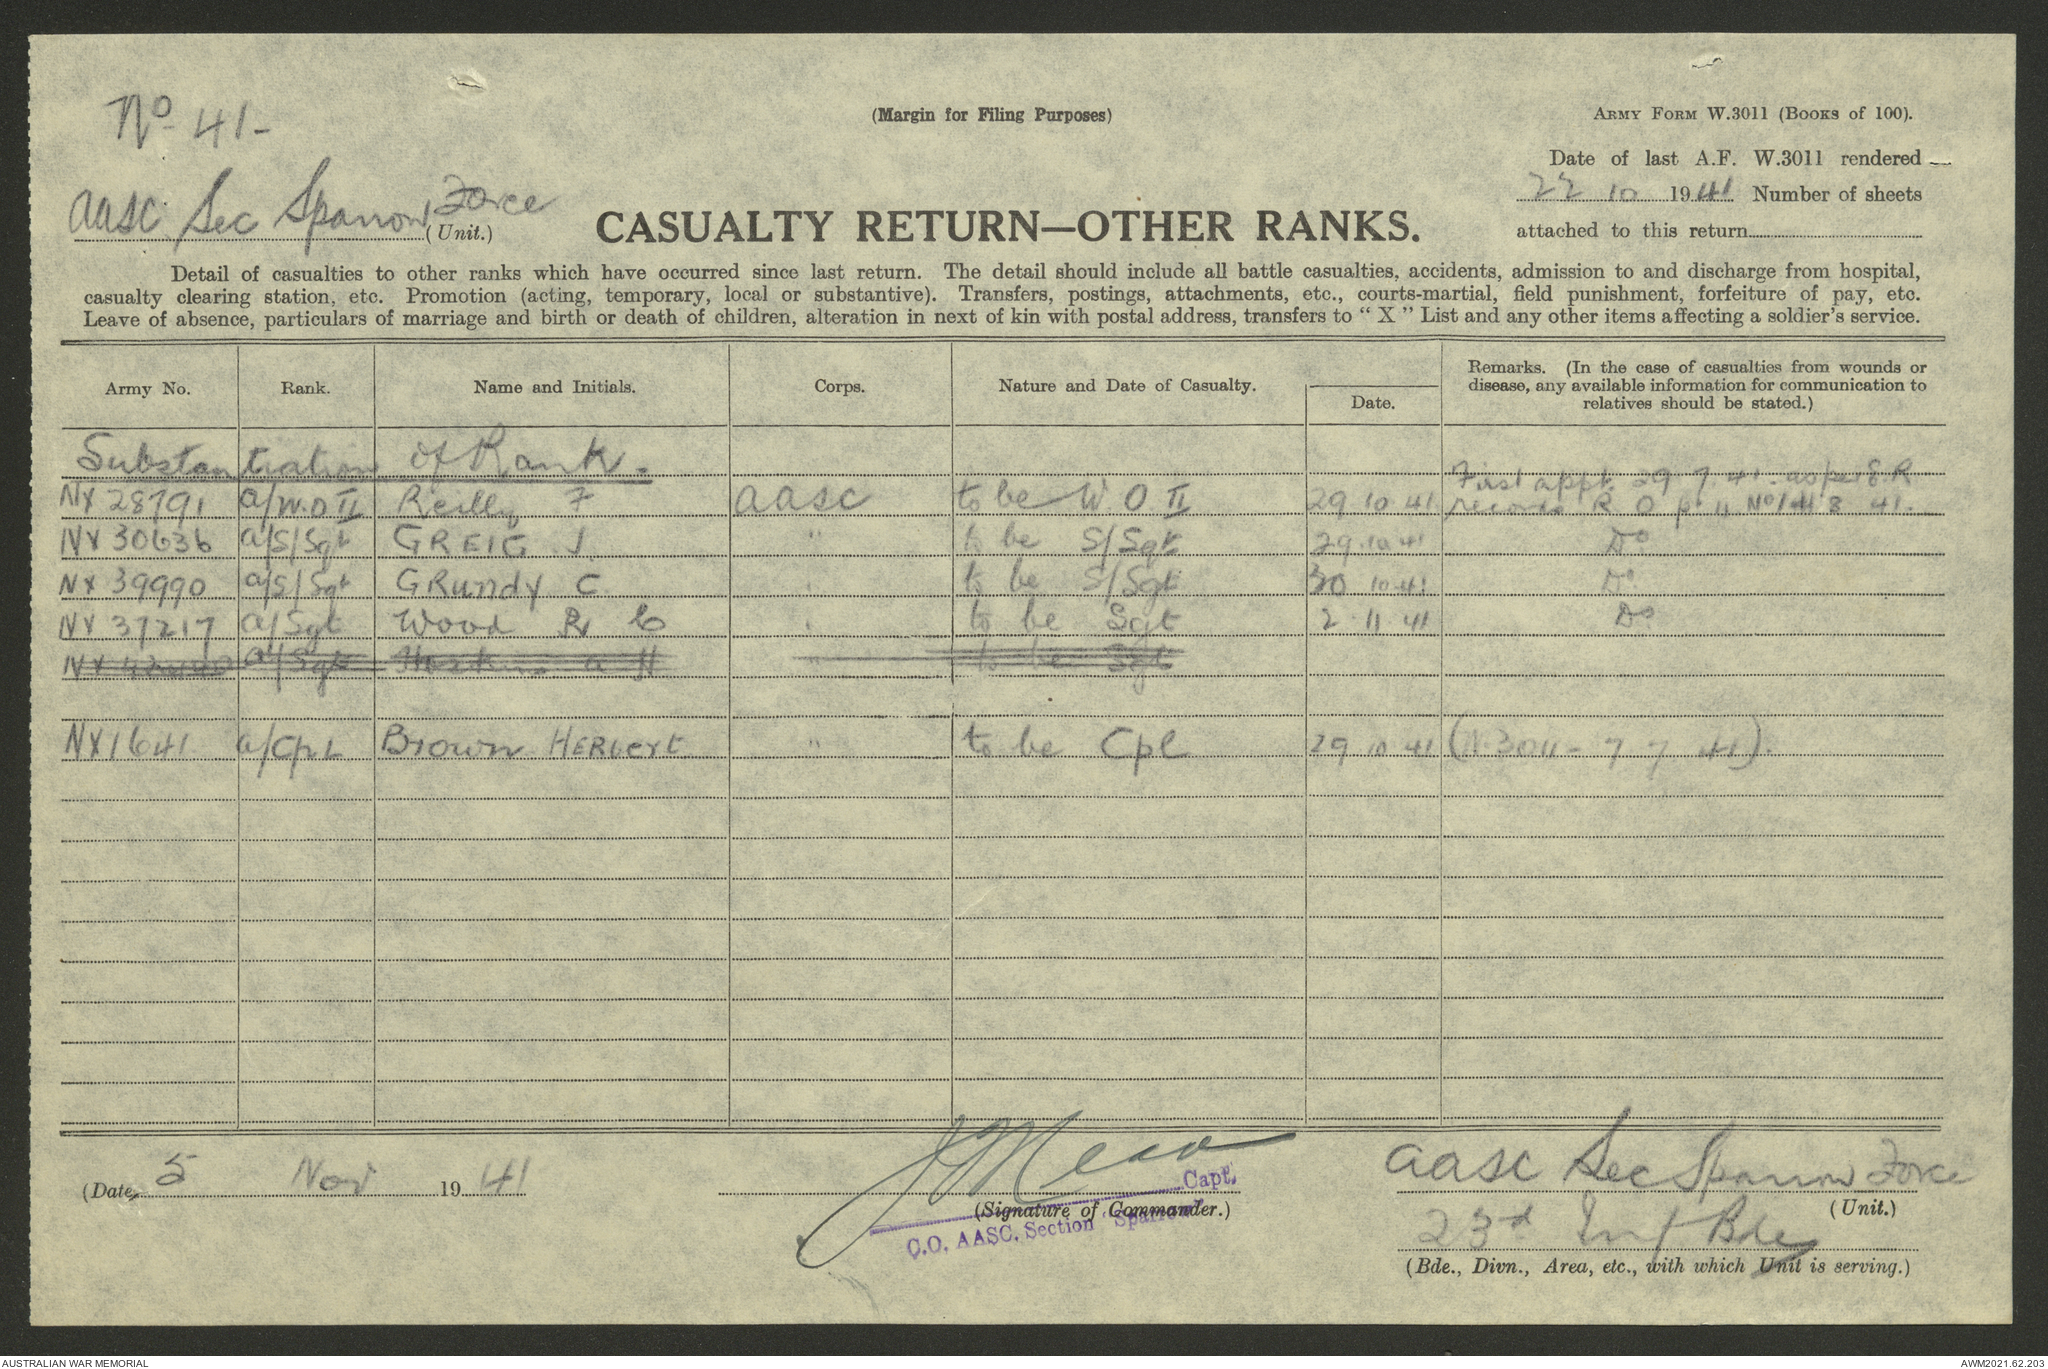 No 41-
(Margin for Filing Purposes)
ARMY FORM W.3011 (BOOKS OF 100).
Date of last A.F. W.3011 rendered
22 10 1941 Number of sheets
attached to this return
AASC Sec Sparrow Force
(Unit.)
CASUALTY RETURN—OTHER RANKS.
Detail of casualties to other ranks which have occurred since last return. The detail should include all battle casualties, accidents, admission to and discharge from hospital,
casualty clearing station, etc. Promotion (acting, temporary, local or substantive). Transfers, postings, attachments, etc., courts-martial, field punishment, forfeiture of pay, etc.
Leave of absence, particulars of marriage and birth or death of children, alteration in next of kin with postal address, transfers to "X" List and any other items affecting a soldier's service.
Army No. Rank. Name and Initials. Corps. Nature and Date of Casualty. Date. Remarks. (In the case of casualties from wounds or
disease, any available information for communication to
relatives should be stated.)
Substantiation of Rank.
First appt. 29 7 41. as per 8.R
NX 28791 A/W.O II Reilly F AASC to be W O II 29 10 41 records R O pt 11 No 8 41.
NX 30636 A/S/Sgt GREIG J. " to be S/Sgt 29.10 41 Do
NX 39990 A/S/Sgt GRUNDY C " to be S/Sgt 30 10.41 Do
NX 37217 A/Sgt Wood R C " to be Sgt 2 11 41 Do
NX A/Sgt A H " to be Sgt
NX1641 A/CpL Brown HERBERT " to be Cpl 29 10 41 (W.3011 - 7 7 41).
(Date, 5 Nov 1941
Capt.
(Signature of Commander.)
C.O. AASC. Section "Sparrow"
AASC Sec Sparrow Force
(Unit.)
23rd Inf Bde
(Bde., Divn., Area, etc., with which Unit is serving.)
AUSTRALIAN WAR MEMORIAL
AWM2021.62.203